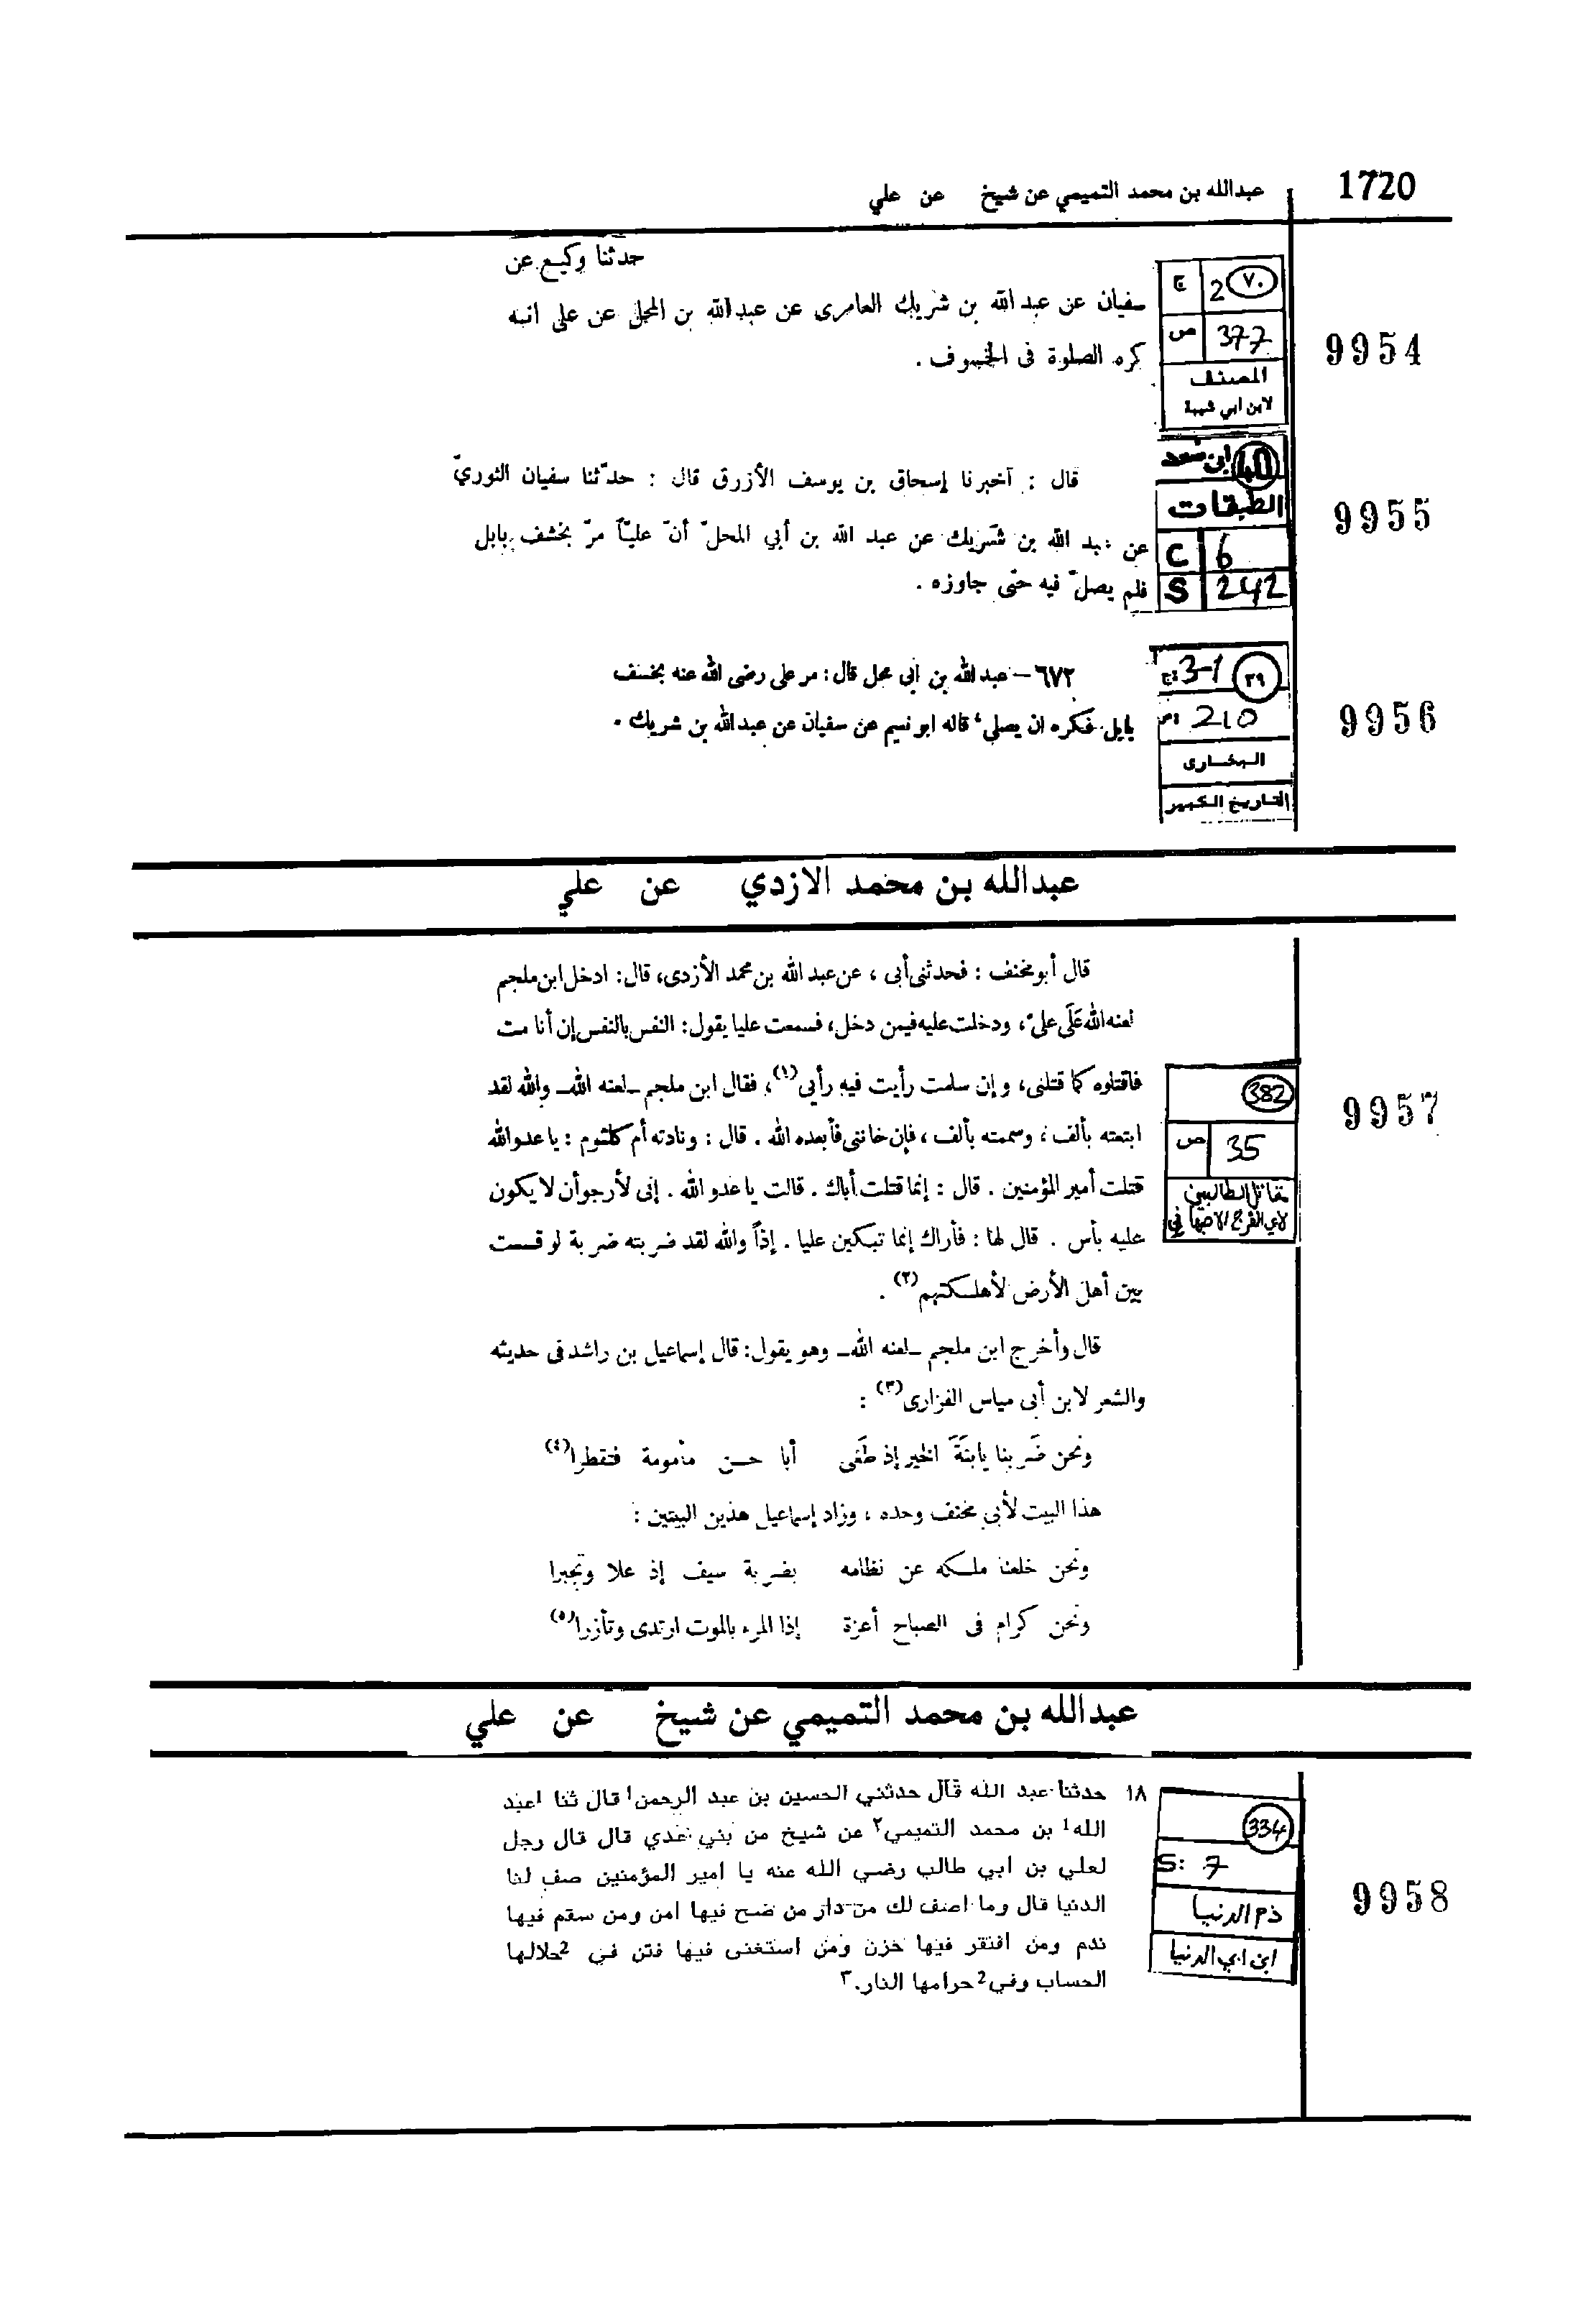 1720
عبدالله بن محمد التميمي عن شيخ عن علي
حدثنا وكيع عن
سفيان عن عبد الله بن شريك العامرى عن عبد الله بن المحل عن على انه
كره الصلوة فى الخسوف .
ج 2 ٧٠
ص 377
المصنف
لابن ابي شيبة
9954
قال : أخبرنا إسحاق بن يوسف الأزرق قال : حدّثنا سفيان الثوريّ
عن عبد الله بن شريك عن عبد الله بن أبي المحلّ أنّ عليّاً مرّ بخسف ببابل
فلم يصلّ فيه حتّى جاوزه .
ابن سعد
الطبقات
C 6
S 242
9955
٦٧٢ – عبد الله بن ابى محل قال : مر على رضى الله عنه بخسف
بابل فكره ان يصلى ، قاله ابو نعيم عن سفيان عن عبد الله بن شريك .
ج: 3-1 ٣٩
ص: 210
البخارى
التاريخ الكبير
9956
عبدالله بن محمد الازدي عن علي
قال أبو مخنف : فحدثنى أبى ، عن عبد الله بن محمد الأزدى، قال: ادخل ابن ملجم
لعنه الله عَلَى علىّ، ودخلت عليه فيمن دخل، فسمعت عليا يقول: النفس بالنفس إن أنا مت
فاقتلوه كما قتلنى، وإن سلمت رأيت فيه رأيى(١)، فقال ابن ملجم ـ لعنه الله ـ والله لقد
ابتعته بألف، وسممته بألف ، فإن خاننى فأبعده الله . قال : ونادته أم كلثوم : يا عدو الله
قتلت أمير المؤمنين . قال : إنما قتلت أباك . قالت يا عدو الله . إنى لأرجو أن لا يكون
عليه بأس . قال لها : فأراك إنما تبكين عليا . إذاً والله لقد ضربته ضربة لو قسمت
بين أهل الأرض لأهلكتهم(٢) .
382
ص 35
مقاتل الطالبيين
لابي الفرج الاصبهاني
9957
قال وأخرج ابن ملجم ـ لعنه الله ـ وهو يقول: قال إسماعيل بن راشد فى حديثه
والشعر لابن أبى مياس الفزارى(٣) :
ونحن ضَربنا يابنَةَ الخير إذ طَغَى أبا حسن مأمومة فتقطرا(٤)
هذا البيت لأبى مخنف وحده ، وزاد إسماعيل هذين البيتين :
ونحن خلعنا ملكه عن نظامه بضربة سيف إذ علا وتجبرا
ونحن كرام فى الصباح أعزة إذا المرء بالموت ارتدى وتأزرا(٥)
عبدالله بن محمد التميمي عن شيخ عن علي
١٨ حدثنا عبد الله قال حدثني الحسين بن عبد الرحمن١ قال ثنا ١عبد
الله١ بن محمد التميمي٢ عن شيخ من بني عدي قال قال رجل
لعلي بن ابي طالب رضي الله عنه يا امير المؤمنين صف لنا
الدنيا قال وما اصف لك من دار من صح فيها امن ومن سقم فيها
ندم ومن افتقر فيها حزن ومن استغنى فيها فتن في 2حلالها
الحساب وفي2 حرامها النار.٣
334
S: 7
ذم الدنيا
ابن ابي الدنيا
9958